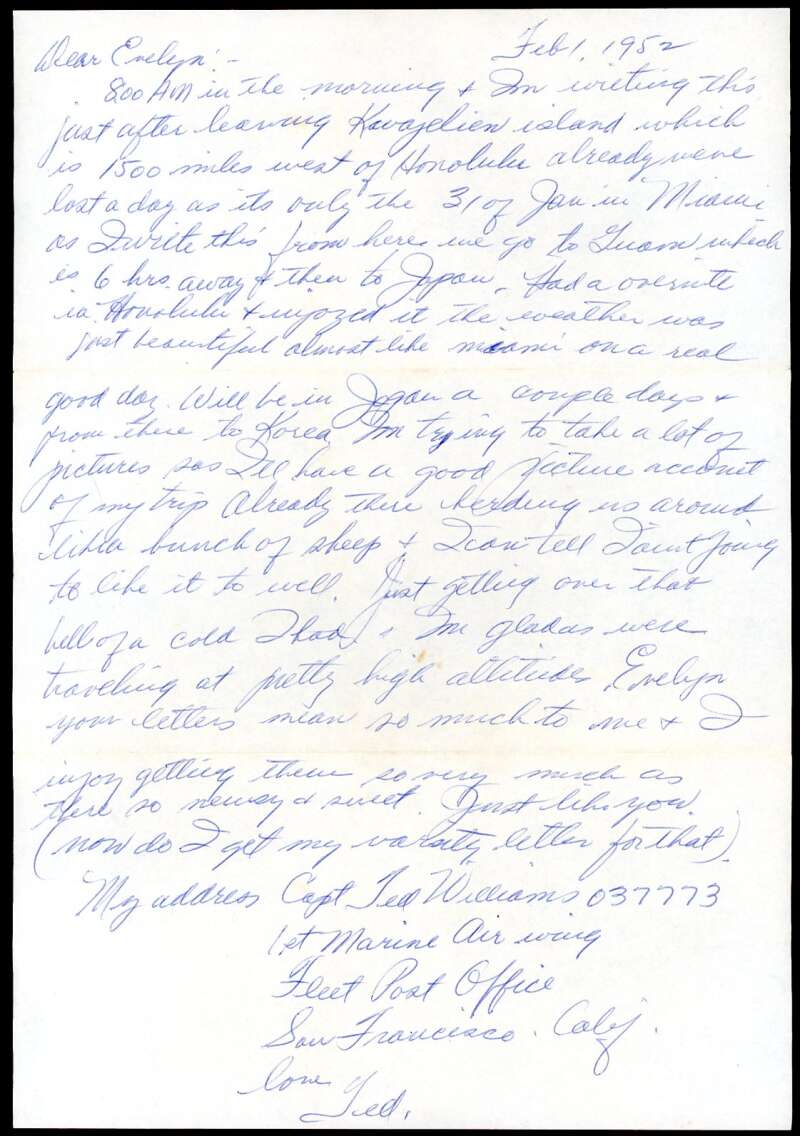 Dear Evelyn:- Feb 1, 1952
800 AM in the morning & Im writing this
just after leaving Kavajelien island which
is 1500 miles west of Honolulu already were
lost a day as its only the 31 of Jan in Miami
as I write this from here we go to Guam which
is 6 hrs. away & then to Japan. Had a overnite
in Honolulu & injoyed it the weather was
just beautiful almost like miami on a real
good day. Will be in Japan a couple days &
from there to Korea Im trying to take a lot of
pictures sos Ill have a good picture account
of my trip Already there herding us around
like a bunch of sheep & I can tell I aint going
to like it to well. Just getting over that
hell of a cold I had & Im glad as were
traveling at pretty high altitudes. Evelyn
your letters mean so much to me & I
injoy getting them so very much as
there so newsy & sweet. Just like you.
(now do I get my varsity letter for that).
My address Capt Ted Williams 037773
1st Marine Air wing
Fleet Post Office
San Francisco. Calif.
love
Ted.